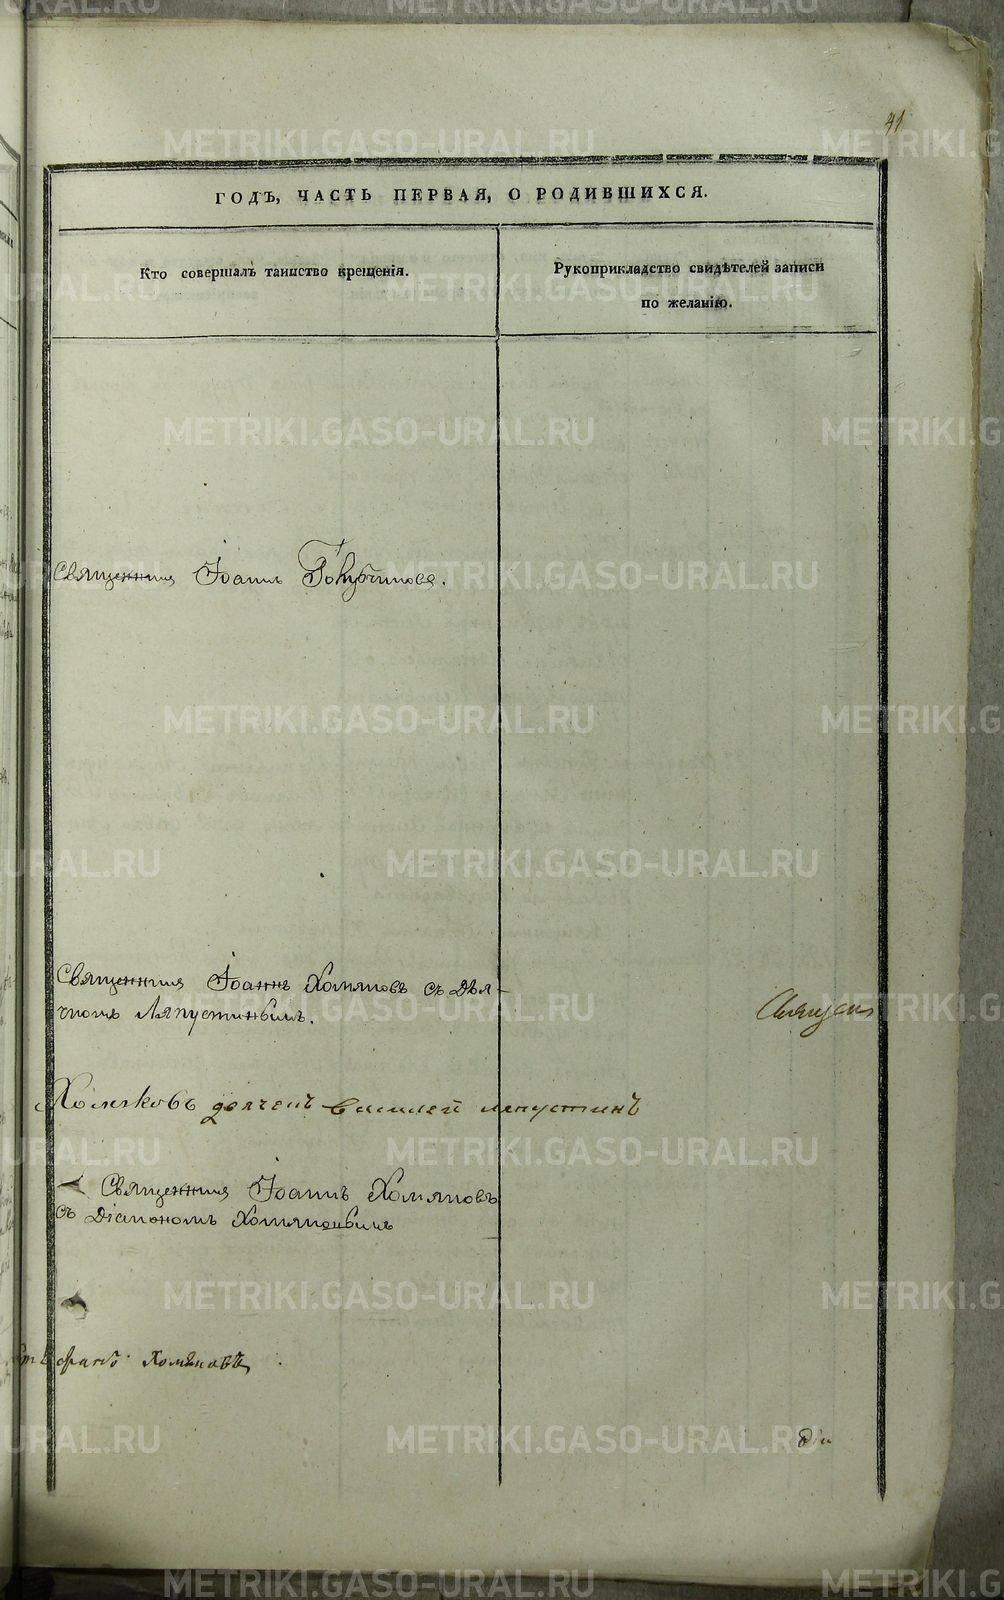 41
ГОДЪ, ЧАСТЬ ПЕРВАЯ, О РОДИВШИХСЯ.
Кто совершалъ таинство крещенія.
Рукоприкладство свидѣтелей записи
по желанію.
Священник Іоанн Голубчиков.
Священник Іоаннъ Хомяковъ съ Дья-
чкомъ Ляпустинымъ.
Священ
Хомяковъ дьячекъ василей ляпустинъ
Священник Іоаннъ Хомяковъ
съ Діакономъ Хомяковымъ
Хомяковъ
Діа
METRIKI.GASO-URAL.RU